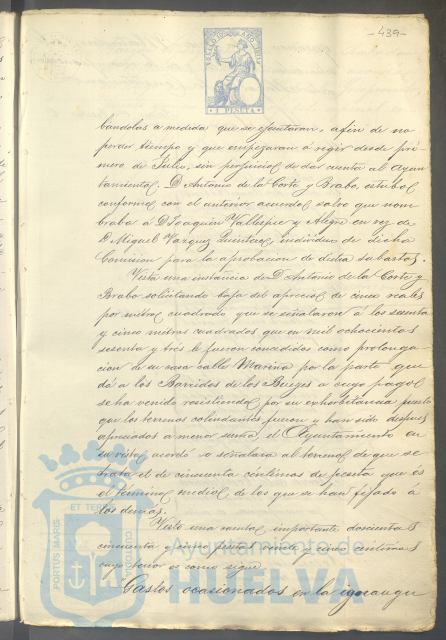 -439-
1 PESETA
bandolas a medida que se ejecutaran, a fin de no
perder tiempo y que empezaran á regir desde pri-
mero de Julio, sin perjuicio de dar cuenta al Ayun-
tamiento. D. Antonio de la Corte y Brabo, estubo
conforme con el anterior acuerdo salvo que nom-
braba á D. Joaquin Vallespir y Alegre en vez de
D. Miguel Vazquez individuo de dicha
Comision para la aprobacion de dicha subasta.
Vista una instancia de D. Antonio de la Corte y
Brabo solicitando baja del aprecio de cinco reales
por metro cuadrado que se señalaron á los
y cinco metros cuadrados que en mil ochocientos
sesenta y tres le fueron concedidos como prolonga-
cion de su casa calle Marina por la parte que
dá á los de los Buezes á cuyo pago
se ha venido resistiendo por su exhorbitancia puesto
que los terrenos colindantes fueron y han sido despues
apreciados a menor suma, el Ayuntamiento en
su vista acordó se señalara al terreno de que se
trata el de cincuenta centimos de peseta que es
el termino medio de los que se han fijado á
los demas.
Visto una cuenta importante doscientas
cincuenta y pesetas veinte y cinco centimos
cuyo tenor es como sigue
Gastos ocasionados en la inaugu
PORTUS MARIS
ET TERR
Ayuntamiento de
HUELVA